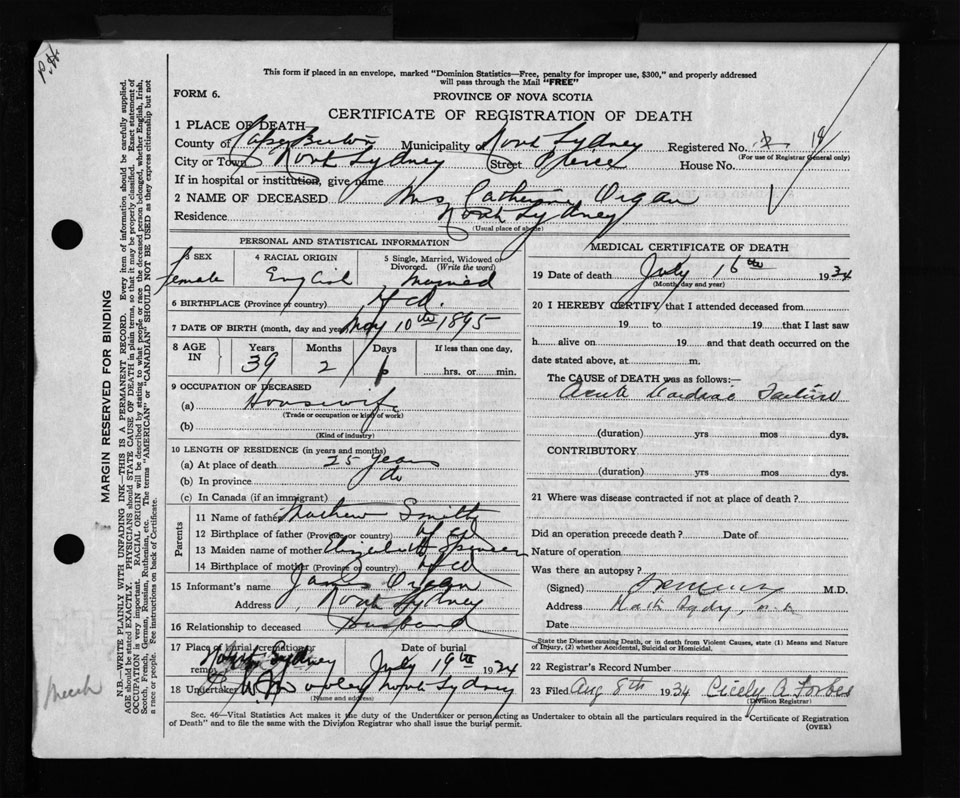 This form if placed in an envelope, marked "Dominion Statistics—Free, penalty for improper use, $300," and properly addressed
will pass through the Mail "FREE"
FORM 6.
PROVINCE OF NOVA SCOTIA
CERTIFICATE OF REGISTRATION OF DEATH
MARGIN RESERVED FOR BINDING
N.B.—WRITE PLAINLY WITH UNFADING INK—THIS IS A PERMANENT RECORD. Every item of information should be carefully supplied.
AGE should be stated EXACTLY. PHYSICIANS should STATE CAUSE OF DEATH in plain terms, so that it may be properly classified. Exact statement of
OCCUPATION is very important. RACIAL ORIGIN will be described by stating to what people or race the deceased person belonged, whether English, Irish,
Scotch, French, German, Russian, Ruthenian, etc. The terms "AMERICAN" or "CANADIAN" SHOULD NOT BE USED as they express citizenship but not
a race or people. See instructions on back of Certificate.
1 PLACE OF DEATH
County of Cape Breton Municipality of North Sydney Registered No.
(For use of Registrar General only)
City or Town North Sydney Street Pierce House No.
If in hospital or institution, give name
2 NAME OF DECEASED Mrs Catherine Organ
Residence North Sydney
(Usual place of abode)
PERSONAL AND STATISTICAL INFORMATION
3 SEX 4 RACIAL ORIGIN 5 Single, Married, Widowed or Divorced. (Write the word)
Female English Married
6 BIRTHPLACE (Province or country) Nfld.
7 DATE OF BIRTH (month, day and year) May 10th 1895
8 AGE IN Years Months Days If less than one day,
39 2 6 hrs. or min.
9 OCCUPATION OF DECEASED
(a) Housewife
(Trade or occupation or kind of work)
(b)
(Kind of industry)
10 LENGTH OF RESIDENCE (in years and months)
(a) At place of death 25 years
(b) In province do
(c) In Canada (if an immigrant)
Parents
11 Name of father Mathew Smith
12 Birthplace of father (Province or country) Nfld
13 Maiden name of mother Elizabeth Spencer
14 Birthplace of mother (Province or country) Nfld
15 Informant's name James Organ
Address North Sydney
16 Relationship to deceased Husband
17 Place of burial, cremation or removal North Sydney Date of burial July 19th 1934
18 Undertaker North Sydney
(Name and address)
MEDICAL CERTIFICATE OF DEATH
19 Date of death July 16th 1934
(Month, day and year)
20 I HEREBY CERTIFY that I attended deceased from
19 to 19 that I last saw
h alive on 19 and that death occurred on the
date stated above, at m.
The CAUSE of DEATH was as follows:—
Acute Cardiac Failure
(duration) yrs mos dys.
CONTRIBUTORY
(duration) yrs mos dys.
21 Where was disease contracted if not at place of death?
Did an operation precede death? Date of
Nature of operation
Was there an autopsy?
(Signed) M.D.
Address North Sydney, N.S.
Date
State the Disease causing Death, or in death from Violent Causes, state (1) Means and Nature
of Injury, (2) whether Accidental, Suicidal or Homicidal.
22 Registrar's Record Number
23 Filed Aug 8th 1934 Cicely A. Forbes
(Division Registrar)
Sec. 46—Vital Statistics Act makes it the duty of the Undertaker or person acting as Undertaker to obtain all the particulars required in the "Certificate of Registration
of Death" and to file the same with the Division Registrar who shall issue the burial permit.
(OVER)